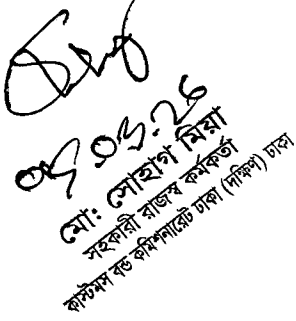 ০৫.০৩.২৬
মো: সোহাগ মিয়া
সহকারী রাজস্ব কর্মকর্তা
কাস্টমস বন্ড কমিশনারেট ঢাকা (দক্ষিণ) ঢাকা